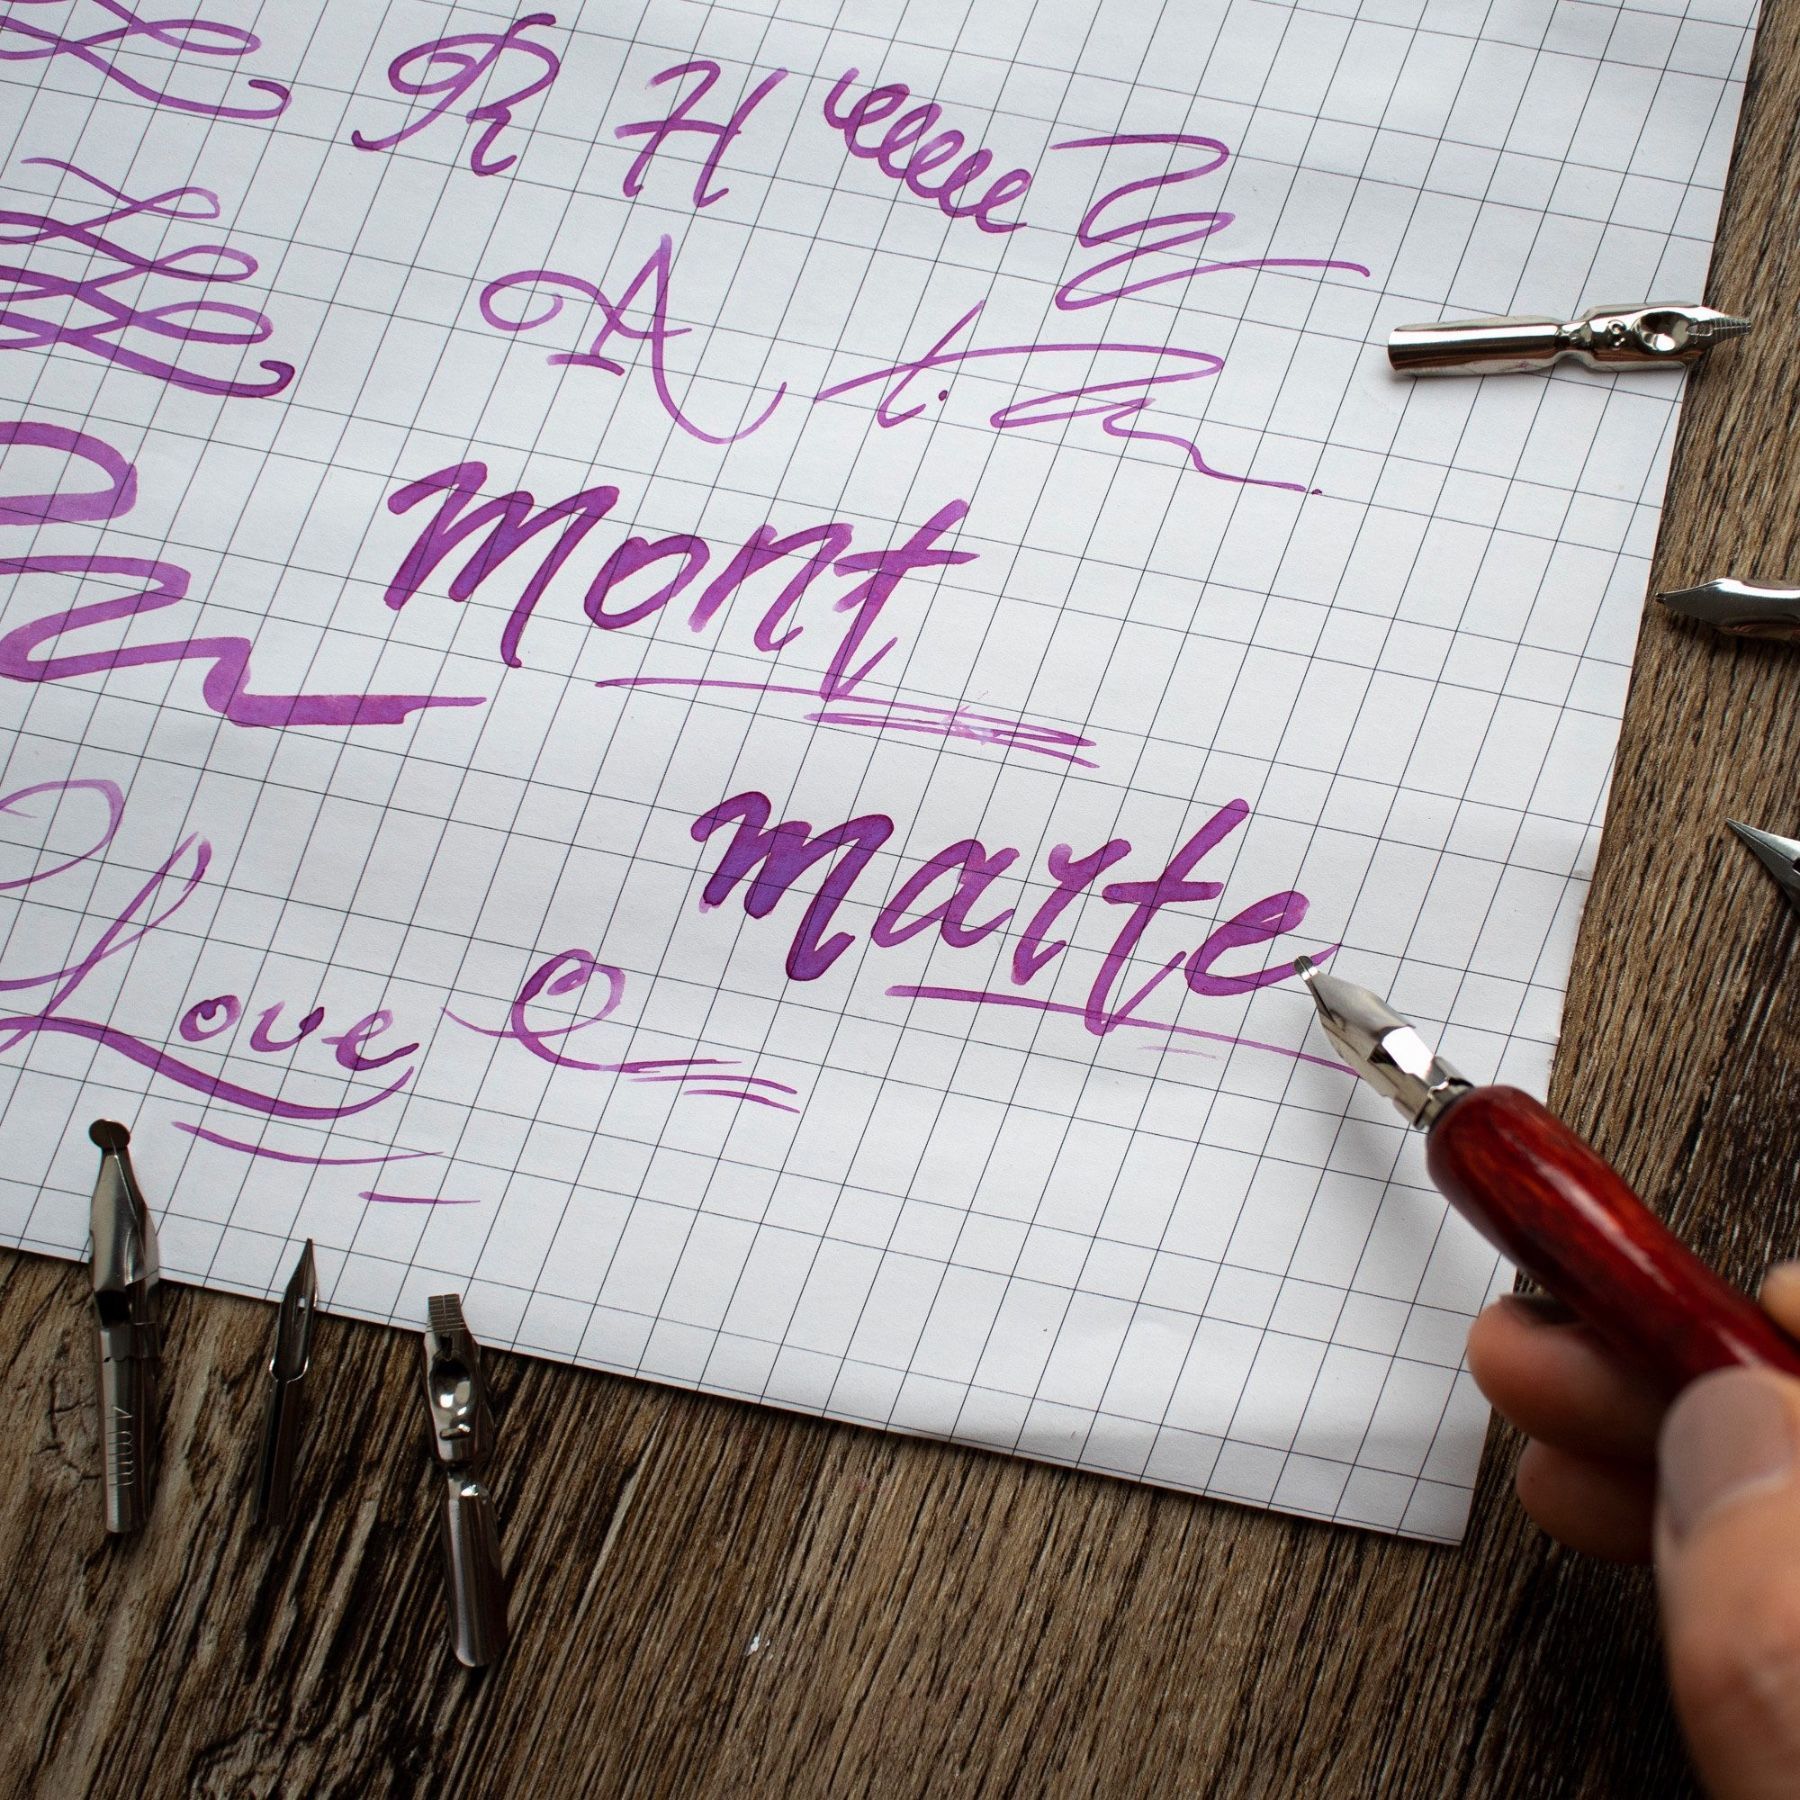 R H
A t.
Mont
Marte
Love
4mm